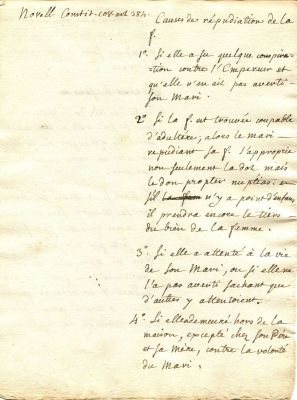 Novell Constit. 
Causes de répudiation de la
f.
1.° Si elle a su quelque conspira=
=tion contre l'Empereur et
qu'elle n'en ait pas averti
son Mari.
2.° Si la f. est trouvée coupable
d'adultère; alors le mari
repudiant sa f. s'approprie
non seulement la dot mais
le don propter nuptias. et
s'il n'y a point d'enfans,
il prendra encore le tiers
du bien de la femme.
3.° Si elle a attenté à la vie
de son Mari, ou si elle ne
l'a pas averti sachant que
d'autres y attentoient.
4.° Si elle a demeuré hors de la
maison, excepté chez son Père
et sa Mère, contre la volonté
du Mari.